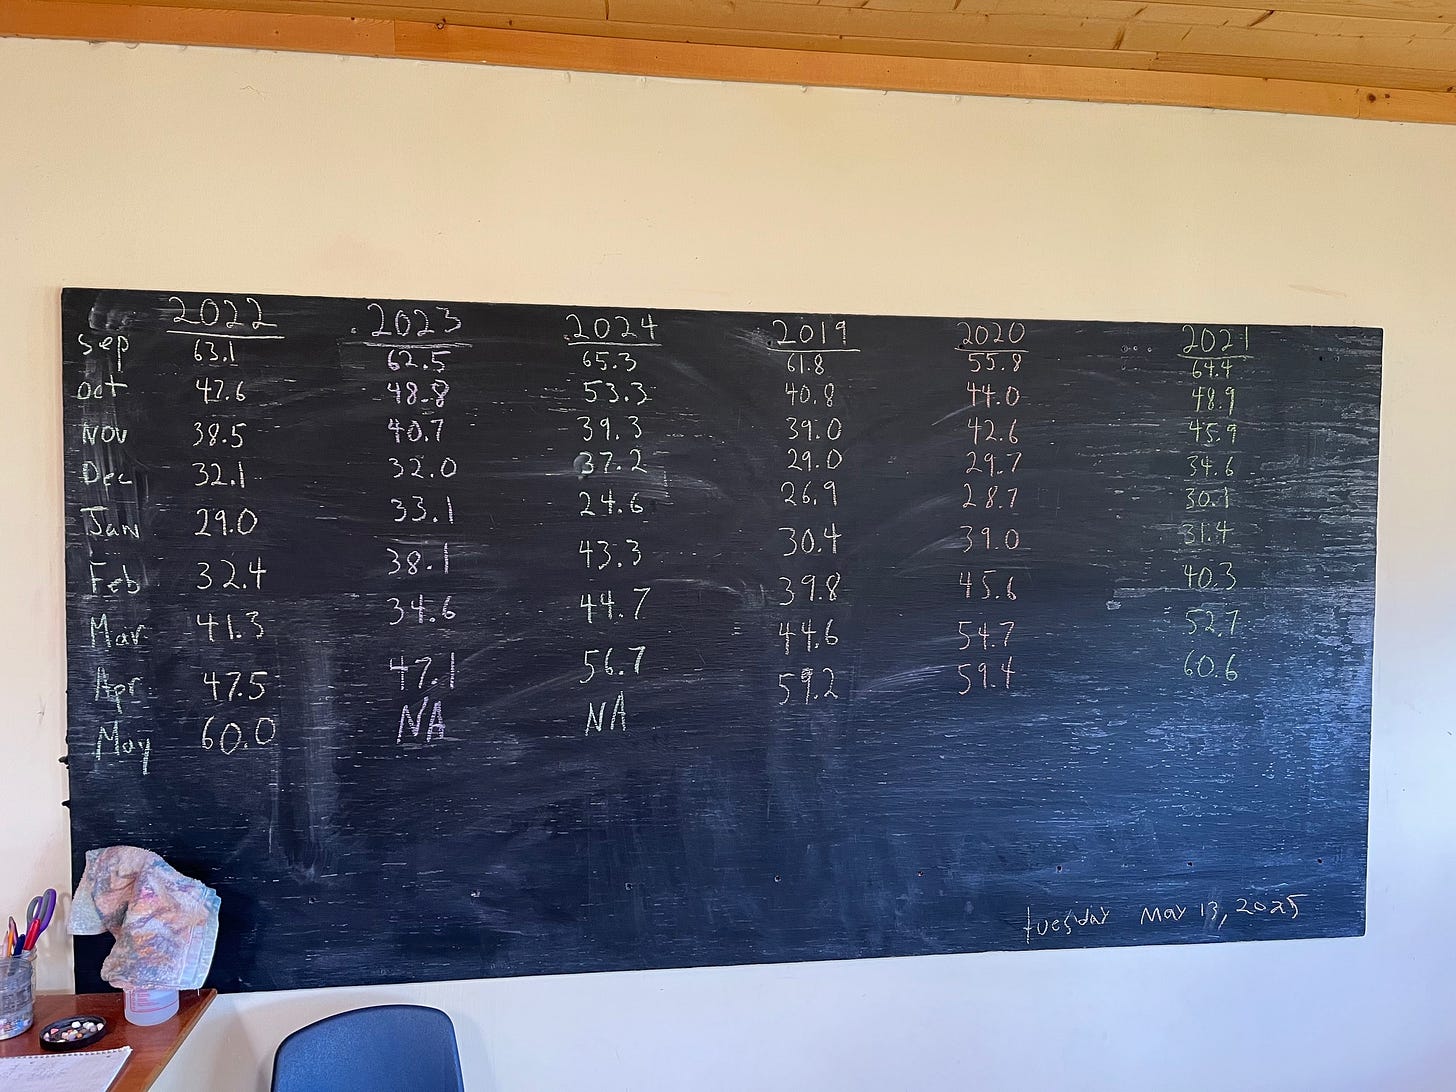 2022 2023 2024 2019 2020 2021
Sep 63.1 62.5 65.3 61.8 55.8 64.4
Oct 47.6 48.8 53.3 40.8 44.0 48.9
Nov 38.5 40.7 39.3 39.0 42.6 45.9
Dec 32.1 32.0 37.2 29.0 29.7 34.6
Jan 29.0 33.1 24.6 26.9 28.7 30.1
Feb 32.4 38.1 43.3 30.4 39.0 31.4
Mar 41.3 34.6 44.7 39.8 45.6 40.3
Apr 47.5 47.1 56.7 44.6 54.7 52.7
May 60.0 NA NA 59.2 59.4 60.6
tuesday May 13, 2025